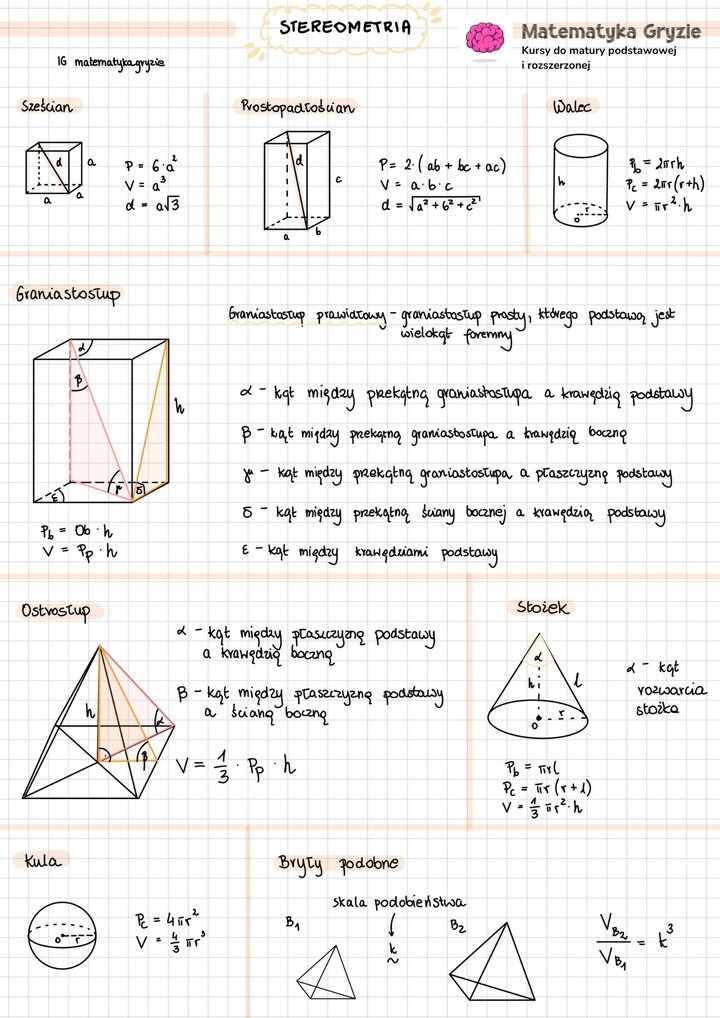 STEREOMETRIA
IG matematyka.gryzie
Matematyka Gryzie
Kursy do matury podstawowej
i rozszerzonej
Sześcian
d
a
a
a
P = 6·a²
V = a³
d = a√3
Prostopadłościan
d
c
a
b
P = 2·(ab + bc + ac)
V = a·b·c
d = √a² + b² + c²
Walec
h
r
o
Pb = 2πrh
Pc = 2πr(r+h)
V = πr²·h
Graniastosłup
α
β
h
γ
δ
ε
Pb = Ob · h
V = Pp · h
Graniastosłup prawidłowy - graniastosłup prosty, którego podstawą jest
wielokąt foremny
α - kąt między przekątną graniastosłupa a krawędzią podstawy
β - kąt między przekątną graniastosłupa a krawędzią boczną
γ - kąt między przekątną graniastosłupa a płaszczyzną podstawy
δ - kąt między przekątną ściany bocznej a krawędzią podstawy
ε - kąt między krawędziami podstawy
Ostrosłup
h
α
β
α - kąt między płaszczyzną podstawy
a krawędzią boczną
β - kąt między płaszczyzną podstawy
a ścianą boczną
V = 1/3 · Pp · h
Stożek
α
h
l
r
o
α - kąt
rozwarcia
stożka
Pb = πrl
Pc = πr(r+l)
V = 1/3 πr²·h
Kula
o
r
Pc = 4πr²
V = 4/3 πr³
Bryły podobne
skala podobieństwa
B₁
k
~
B₂
V_B₂/V_B₁ = k³